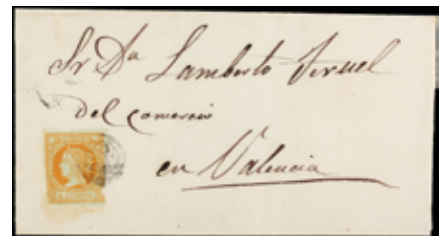 Sr Dn Lamberto Teruel
del comercio
en Valencia